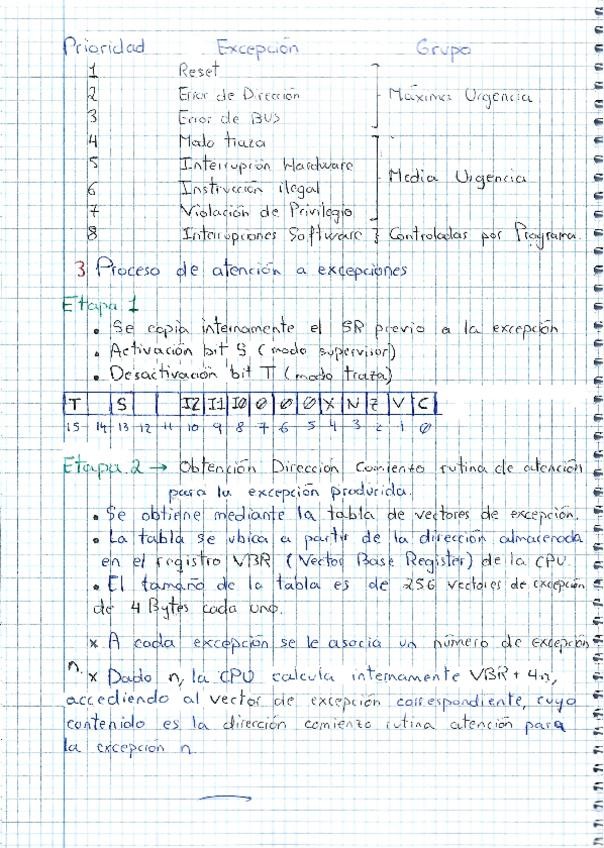 Prioridad Excepción Grupo
1 Reset
2 Error de Dirección Máxima Urgencia
3 Error de BUS
4 Modo traza
5 Interrupción Hardware
6 Instrucción ilegal Media Urgencia
7 Violación de Privilegio
8 Interrupciones Software } Controladas por Programa.
3 Proceso de atención a excepciones
Etapa 1
• Se copia internamente el SR previo a la excepción
• Activación bit S (modo supervisor)
• Desactivación bit T (modo traza)
T S I2 I1 I0 0 0 0 X N Z V C
15 14 13 12 11 10 9 8 7 6 5 4 3 2 1 0
Etapa 2 → Obtención Dirección Comienzo rutina de atención
para la excepción producida.
• Se obtiene mediante la tabla de vectores de excepción.
• La tabla se ubica a partir de la dirección almacenada
en el registro VBR (Vector Base Register) de la CPU.
• El tamaño de la tabla es de 256 vectores de excepción
de 4 Bytes cada uno.
x A cada excepción se le asocia un número de excepción
n.
x Dado n, la CPU calcula internamente VBR + 4n,
accediendo al vector de excepción correspondiente, cuyo
contenido es la dirección comienzo rutina atención para
la excepción n.